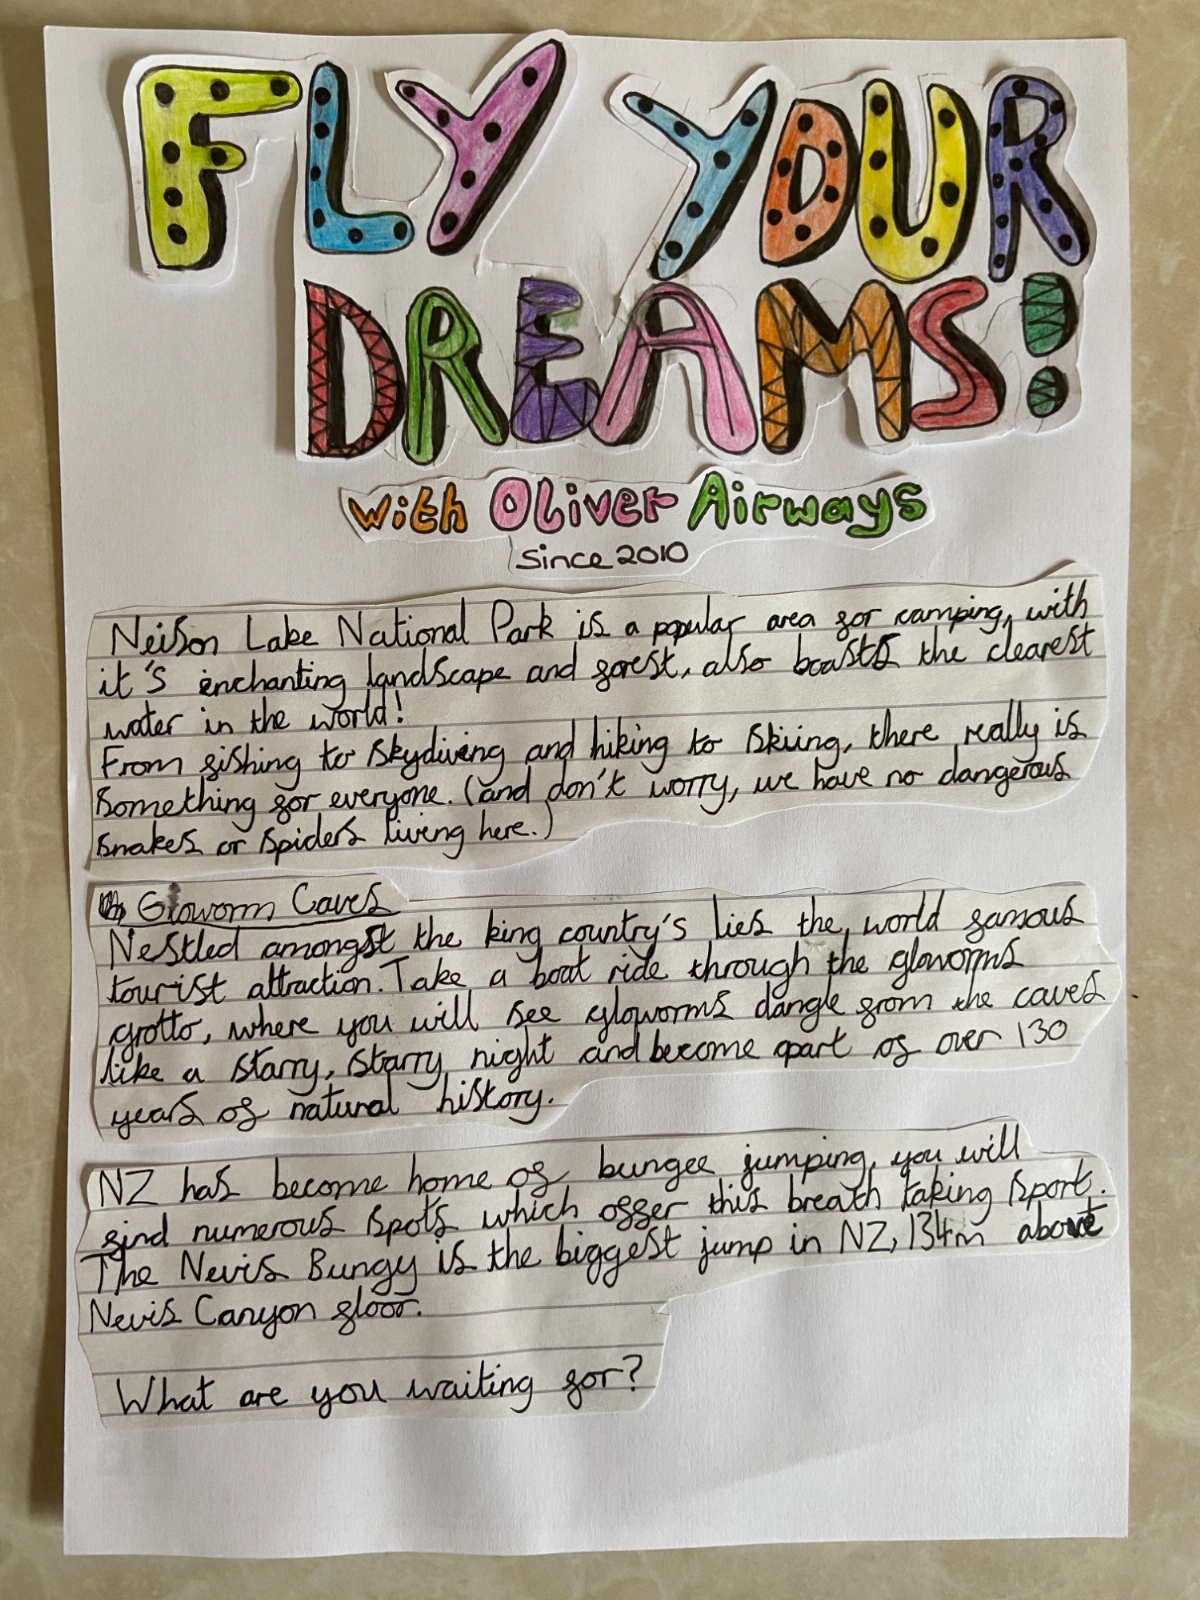 FLY YOUR
DREAMS!
with Oliver Airways
Since 2010
Neilson Lake National Park is a popular area for camping, with
it's enchanting landscape and forest, also boasts the clearest
water in the world!
From fishing to skydiving and hiking to skiing, there really is
something for everyone. (and don't worry, we have no dangerous
snakes or spiders living here.)
Gloworm Caves
Nestled amongst the king country's lies the world famous
tourist attraction. Take a boat ride through the gloworms
grotto, where you will see gloworms dangle from the caves
like a starry, starry night and become apart of over 130
years of natural history.
NZ has become home of bungee jumping, you will
find numerous spots which offer this breath taking sport.
The Nevis Bungy is the biggest jump in NZ, 134m above
Nevis Canyon floor.
What are you waiting for?